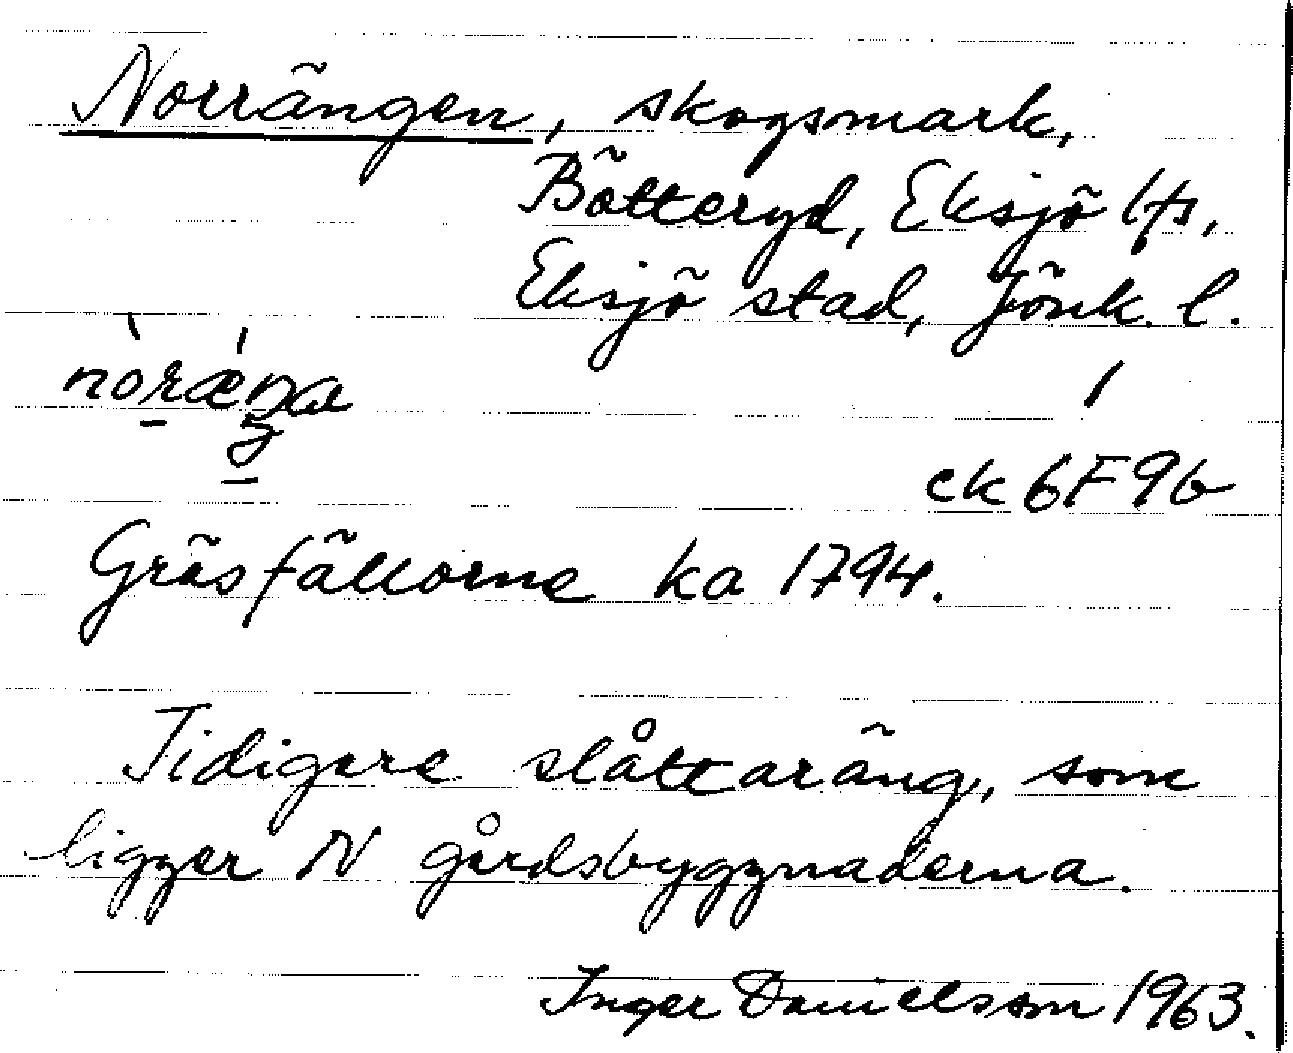 Norrängen, skogsmark,
Bötteryd, Eksjö lfs,
Eksjö stad, Jönk. l.
ek 6F9b
Gräsfällorne ka 1794.
Tidigare slåtteräng, som
ligger N gårdsbyggnaderna.
Inger Danielsson 1963.